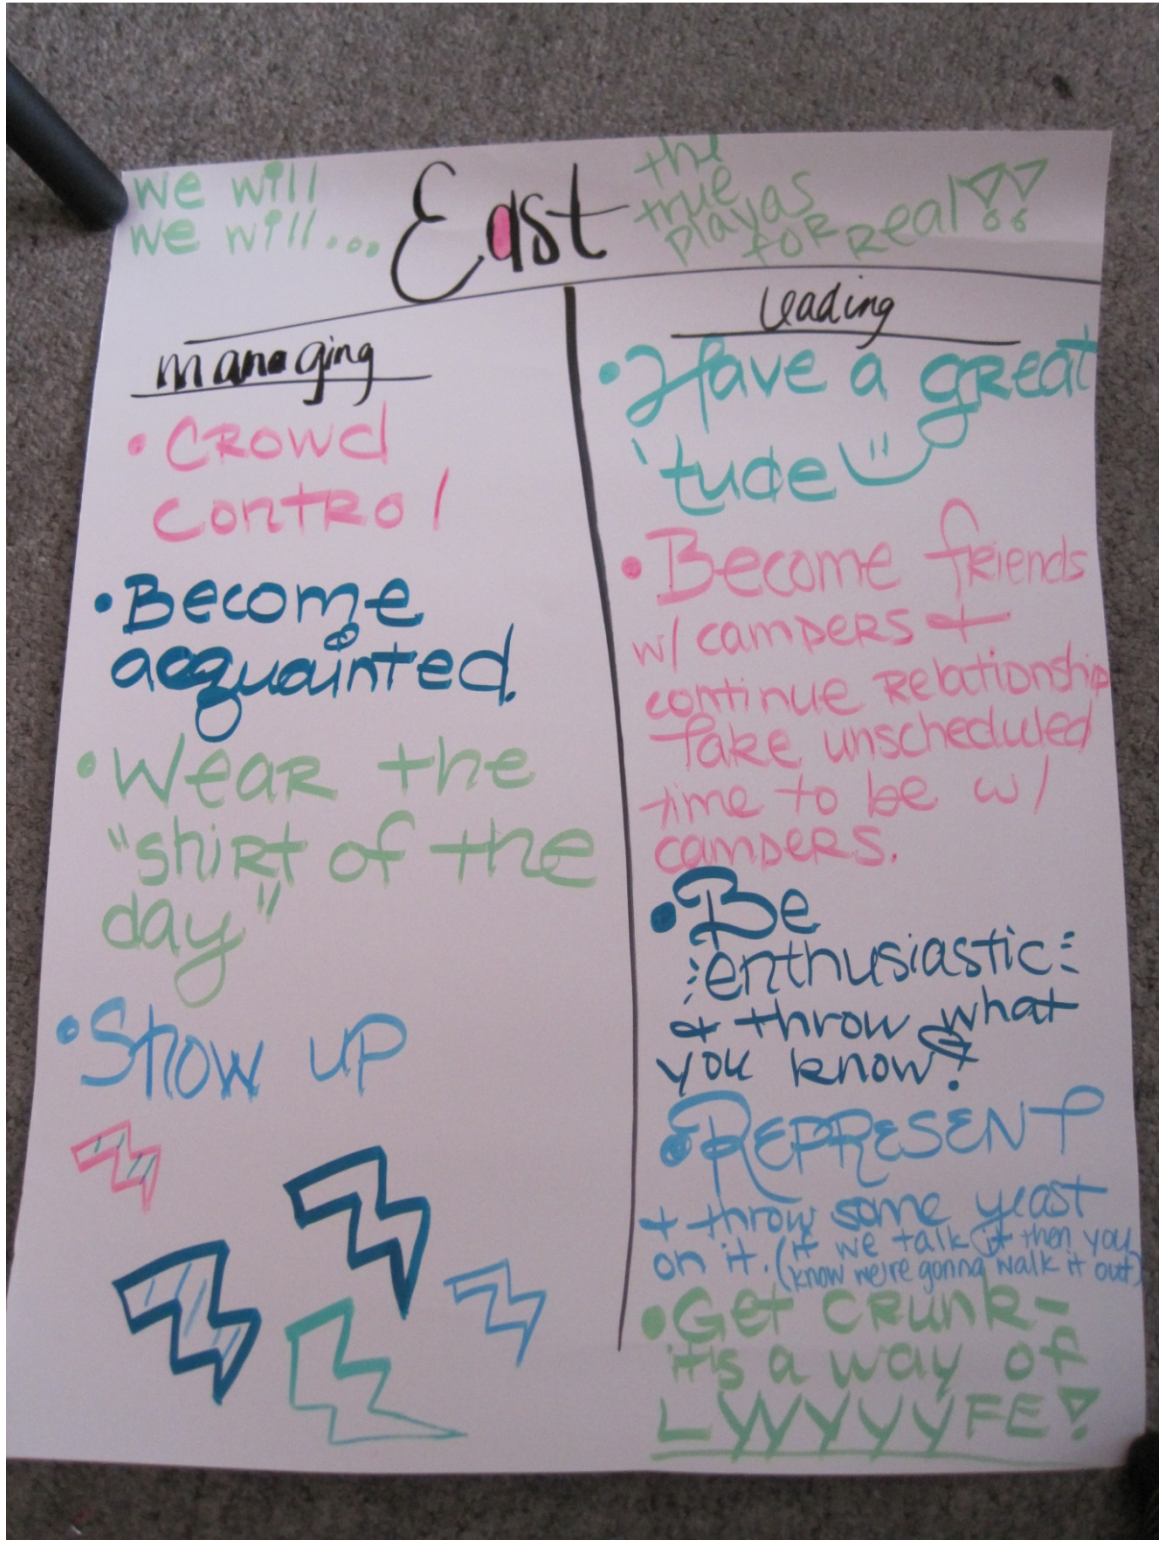 we will
we will...
East
the
true
playas
for Real!!
managing
• Crowd
control
• Become
acquainted.
• Wear the
"shirt of the
day"
• Show up
leading
• Have a great
'tude
• Become friends
w/ campers +
continue relationship
Take unscheduled
time to be w/
campers.
• Be
enthusiastic
+ throw what
you know!
• REPRESENT
+ throw some yeast
on it. (if we talk it then you
know we're gonna walk it out)
• Get CRUNK-
it's a way of
LWYYYYFE!